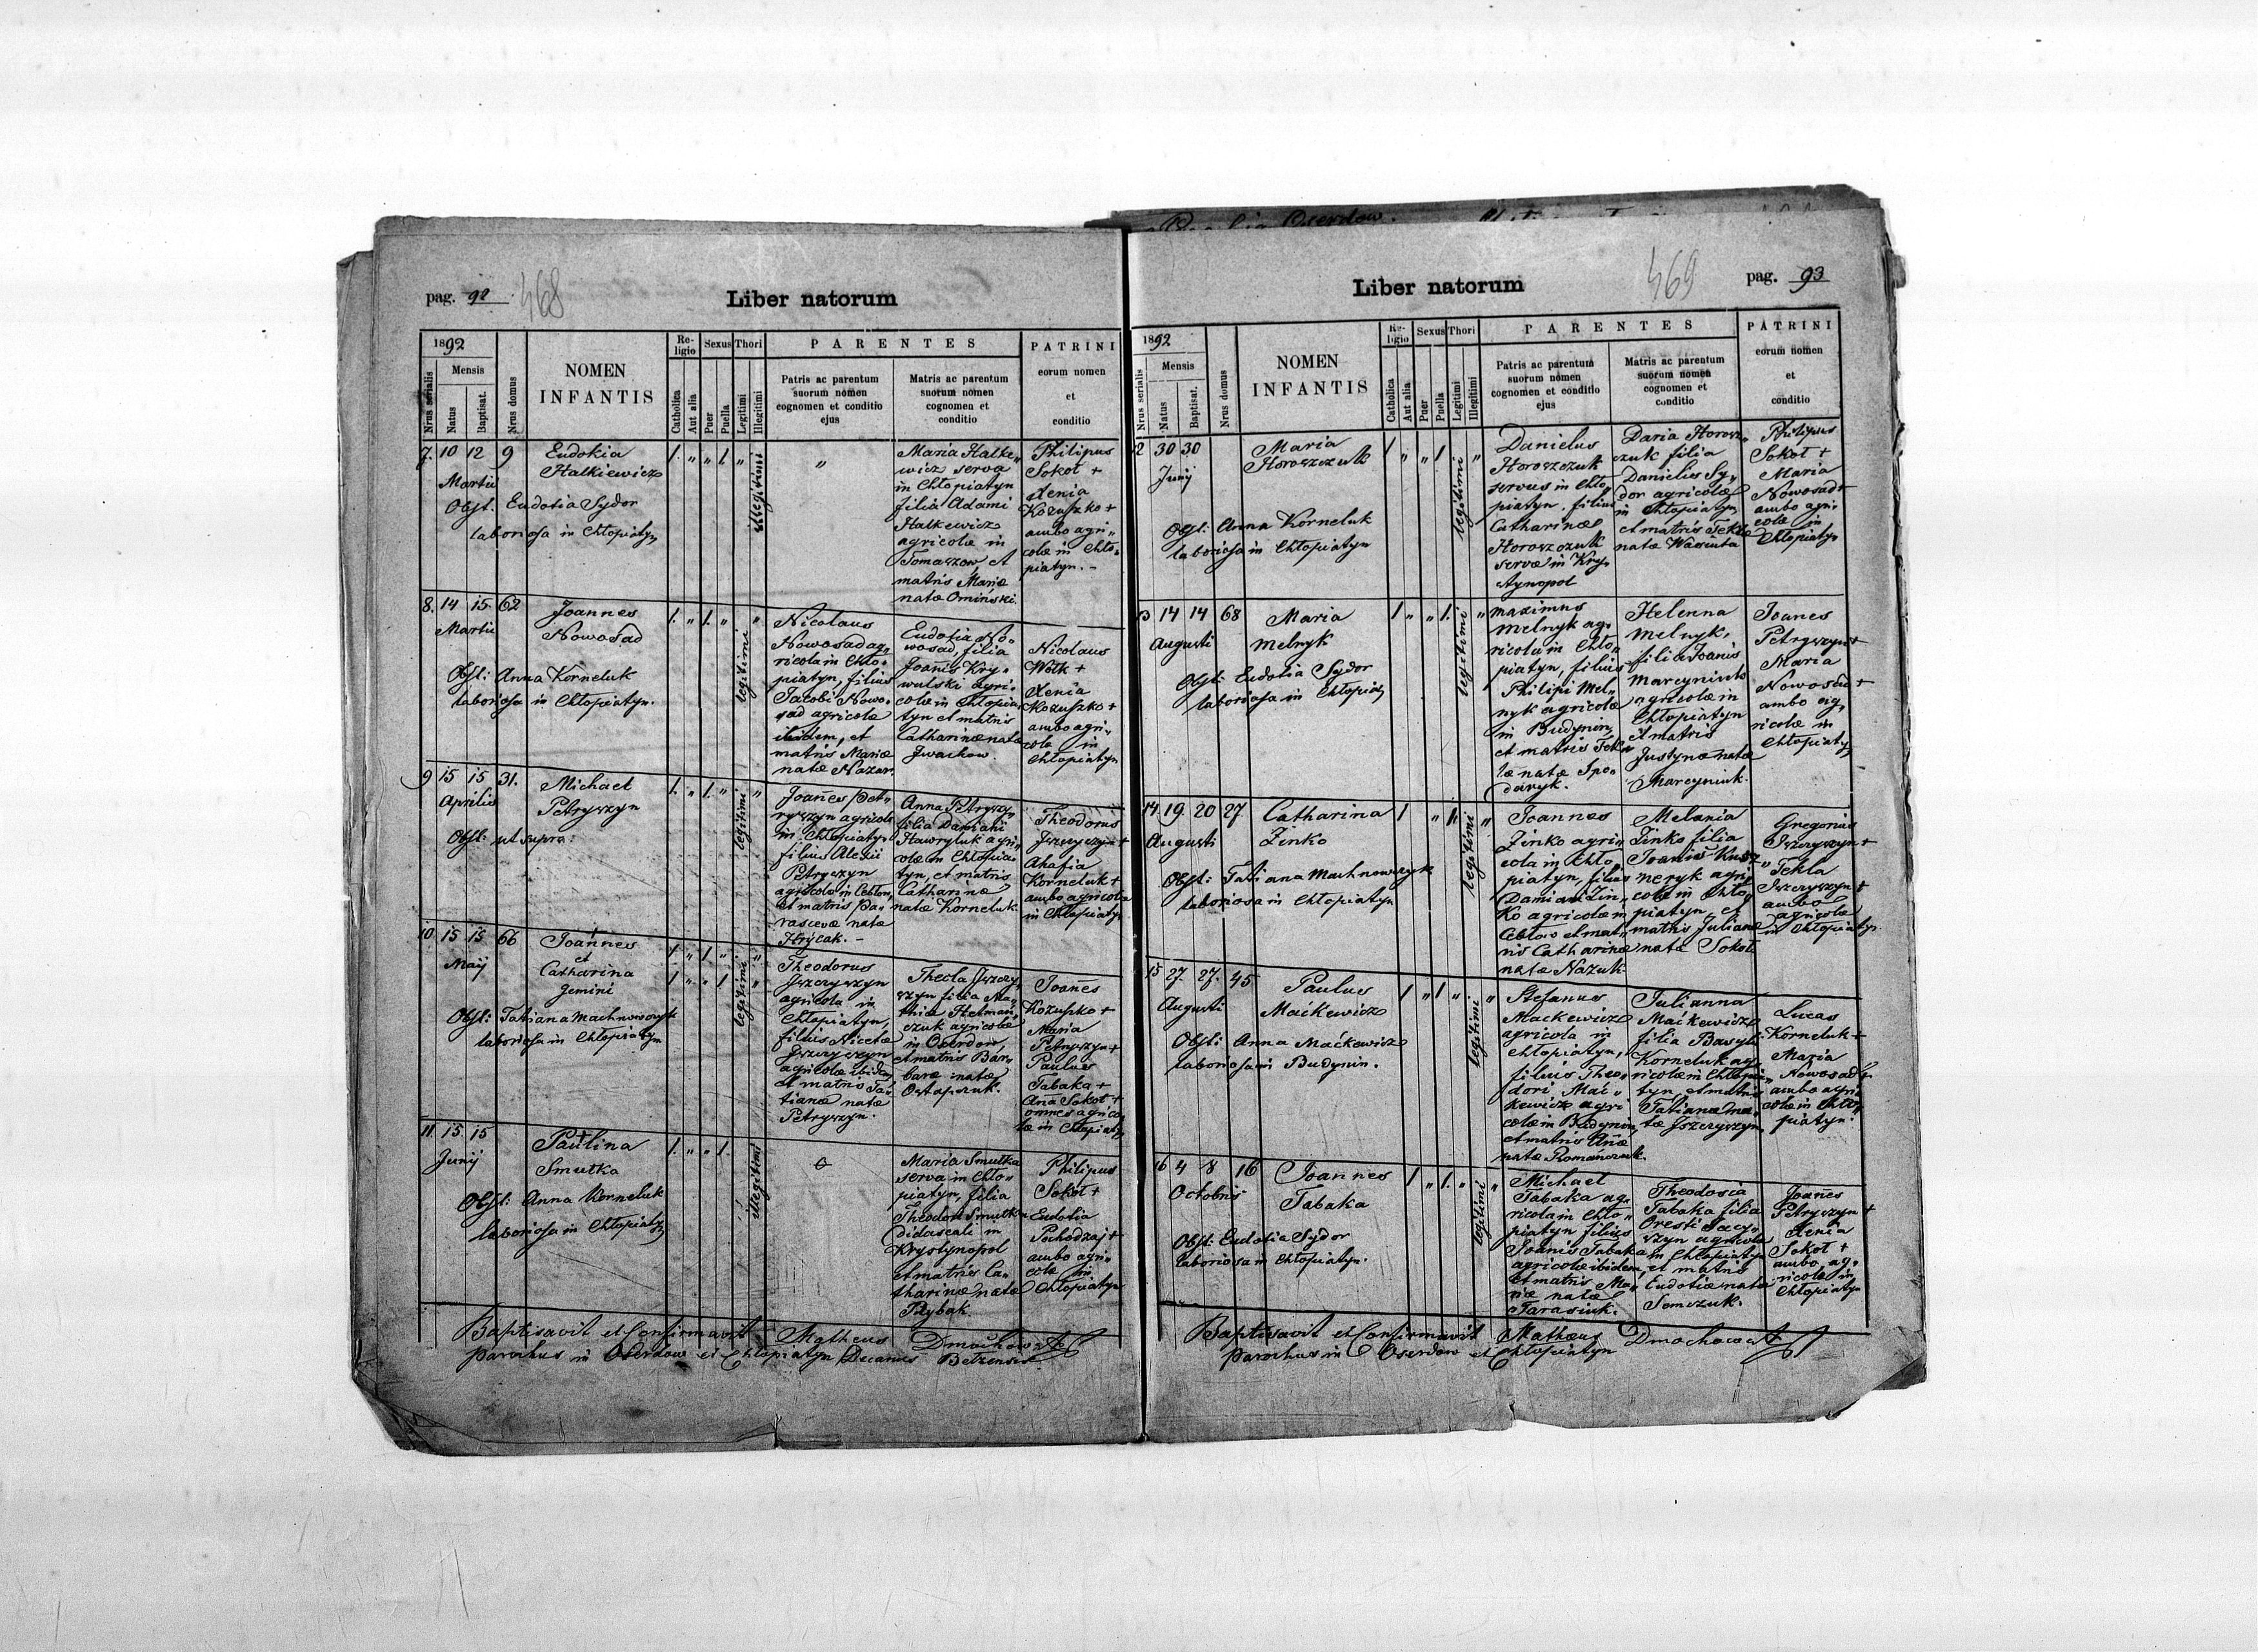 pag. 92 468
Liber natorum
1892
Nrus serialis
Mensis
Natus
Baptisat.
Nrus domus
NOMEN
INFANTIS
Re-
ligio
Catholica
Aut alia
Sexus
Puer
Puella
Thori
Legitimi
Illegitimi
PARENTES
Patris ac parentum
suorum nomen
cognomen et conditio
ejus
Matris ac parentum
suorum nomen
cognomen et
conditio
PATRINI
eorum nomen
et
conditio
7. 10 12 9
Martii
Eudokia
Halkiewicz
Obst. Eudotia Sydor
laboriosa in Chłopiatyn
1. „ „ 1. „
illegitimi
„
Maria Halke„
wicz serva
in Chłopiatyn
filia Adami
Halkewicz
agricolæ in
Tomaszow, et
matris Mariæ
natæ Omiński.
Philipus
Sokoł +
Xenia
Kozuszko +
ambo agri„
colæ in Chło„
piatyn. –
8. 14 15. 62
Martii
Joannes
Nowosad
Obst: Anna Korneluk
laboriosa in Chłopiatyn.
1. „ 1. „ „
legitimi
Nicolaus
Nowosad ag„
ricola in Chło„
piatyn, filius
Jacobi Nowo„
sad agricolæ
ibidem, et
matris Mariæ
natæ Nazar.
Eudotia No„
wosad, filia
Joanis Kry„
wulski agri„
colæ in Chłopia„
tyn et matris
Catharinæ natæ
Iwachow.
Nicolaus
Wołk +
Xenia
Kozuszko +
ambo agri„
colæ in
Chłopiatyn
9 15 15 31.
Aprilis
Michael
Petryszyn
Obst: ut supra:
1. „ 1. „ „
legitimi
Joannes Pet„
ryszyn agricola
in Chłopiatyn
filius Alexii
Petryszyn
agricolæ in Cebłow,
et matris Pa„
rascevæ natæ
Hrycak. –
Anna Petryszyn
filia Damiani
Hawryluk agri„
colæ in Chłopia„
tyn, et matris
Catharinæ
natæ Korneluk
Theodorus
Iszczyszyn +
Ahafia
Korneluk +
ambo agricolæ
in Chłopiatyn
10 15 15 66
Maij
Joannes
et
Catharina
gemini
Obst: Tatiana Machnowszyk
laboriosa in Chłopiatyn
1. „ 1. „ „
1 „ „ 1 „
legitimi
Theodorus
Iszczyszyn
agricola in
Chłopiatyn,
filius Nicetæ
Iszczyszyn
agricolæ ibidem
et matris Ta„
tianæ natæ
Petryszyn.
Thecla Iszczy„
szyn filia Ma„
thiæ Hetman„
czuk agricolæ
in Oserdow,
et matris Bar„
baræ natæ
Ostapczuk.
Joannes
Kozuszko +
Maria
Petryszyn +
Paulus
Tabaka +
Anna Sokoł +
omnes agrico„
læ in Chłopiatyn
11. 15 15
Junij
Paulina
Smutka
Obst: Anna Korneluk
laboriosa in Chłopiatyn
1. „ „ 1.
illegitimi
Maria Smutka
serva in Chło„
piatyn, filia
Theodori Smutka
didascali in
Krystynopol
et matris Ca„
tharinæ natæ
Rybak
Philipus
Sokoł +
Eudotia
Pochodzaj +
ambo agri„
colæ in
Chłopiatyn
Baptisavit et Confirmavit Matheus Dmochowski
parochus in Oserdow et Chłopiatyn Decanus Bełzensis
469 pag. 93
Liber natorum
1892
Nrus serialis
Mensis
Natus
Baptisat.
Nrus domus
NOMEN
INFANTIS
Re-
ligio
Catholica
Aut alia
Sexus
Puer
Puella
Thori
Legitimi
Illegitimi
PARENTES
Patris ac parentum
suorum nomen
cognomen et conditio
ejus
Matris ac parentum
suorum nomen
cognomen et
conditio
PATRINI
eorum nomen
et
conditio
12 30 30
Junij
Maria
Horoszczuk
Obst: Anna Korneluk
laboriosa in Chłopiatyn
1 „ „ 1 „
legitimi
Danielus
Horoszczuk
servus in Chło„
piatyn, filius
Catharinæ
Horoszczuk
servæ in Kry„
stynopol
Daria Horosz„
czuk filia
Danielis Sy„
dor agricolæ
in Chłopiatyn
et matris Teklæ
natæ Wasiuta
Philipus
Sokoł +
Maria
Nowosad +
ambo agri„
colæ in
Chłopiatyn
13 14 14 68
Augusti
Maria
Melnyk
Obst: Eudotia Sydor
laboriosa in Chłopiatyn
1 „ „ 1. „
legitimi
Maximus
Melnyk ag„
ricola in Chło„
piatyn, filius
Philipi Mel„
nyk agricolæ
in Budynin,
et matris Tek„
læ natæ Spo„
daryk.
Helenna
Melnyk,
filia Joanis
Marcyniuk
agricolæ in
Chłopiatyn
et matris
Justynæ natæ
Marcyniuk.
Joanes
Petryszyn +
Maria
Nowosad +
ambo ag„
ricolæ in
Chłopiatyn
14 19. 20 27
Augusti
Catharina
Zinko
Obst: Tatiana Machnowszyk
laboriosa in Chłopiatyn
1 „ 1. „
legitimi
Joannes
Zinko agri„
cola in Chło„
piatyn, filius
Damiani Zin„
ko agricolæ in
Cebłow et mat„
ris Catharinæ
natæ Nazuk
Melania
Zinko filia
Joanis Kusz„
neryk agri„
colæ in Chło„
piatyn, et
matris Julianæ
natæ Sokoł
Gregorius
Iszczyszyn +
Tekla
Iszczyszyn +
ambo
agricolæ
in Chłopiatyn
15 27. 27. 45
Augusti
Paulus
Maćkewicz
Obst: Anna Maćkewicz
laboriosa in Budynin.
1 „ 1 „ „
legitimi
Stefanus
Mackewicz
agricola in
Chłopiatyn,
filius Theo„
dori Mać„
kewicz agri
colæ in Budynin,
et matris Annæ
natæ Romańczuk.
Julianna
Maćkewicz
filia Basyli
Korneluk ag„
ricolæ in Chłopia„
tyn, et matris
Tatianæ na„
tæ Iszczyszyn,
Lucas
Korneluk +
Maria
Nowosad +
ambo agri„
colæ in Chło„
piatyn.
16 4 8 16
Octobris
Joannes
Tabaka
Obst: Eudotia Sydor
laboriosa in Chłopiatyn.
1 „ 1. „ „
legitimi
Michael
Tabaka ag„
ricola in Chło„
piatyn filius
Joanis Tabaka
agricolæ ibidem,
et matris Ma„
riæ natæ
Tarasiuk.
Theodosia
Tabaka filia
Oresti Jacy„
szyn agricolæ
in Chłopiatyn
et matris
Eudotiæ natæ
Tomczuk.
Joannes
Petryszyn +
Xenia
Sokoł +
ambo ag„
ricolæ in
Chłopiatyn
Baptisavit et Confirmavit Matheus Dmochowski
parochus in Oserdow et Chłopiatyn